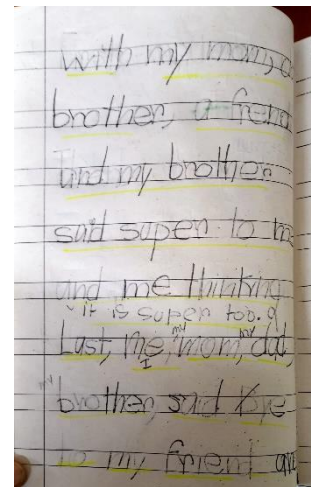 with my mom, a
brother, a frend
and my brother
said super to me
and me thinking
it is super too.
Last, me, my mom, my dad,
I
my brother, said bye
to my friend and